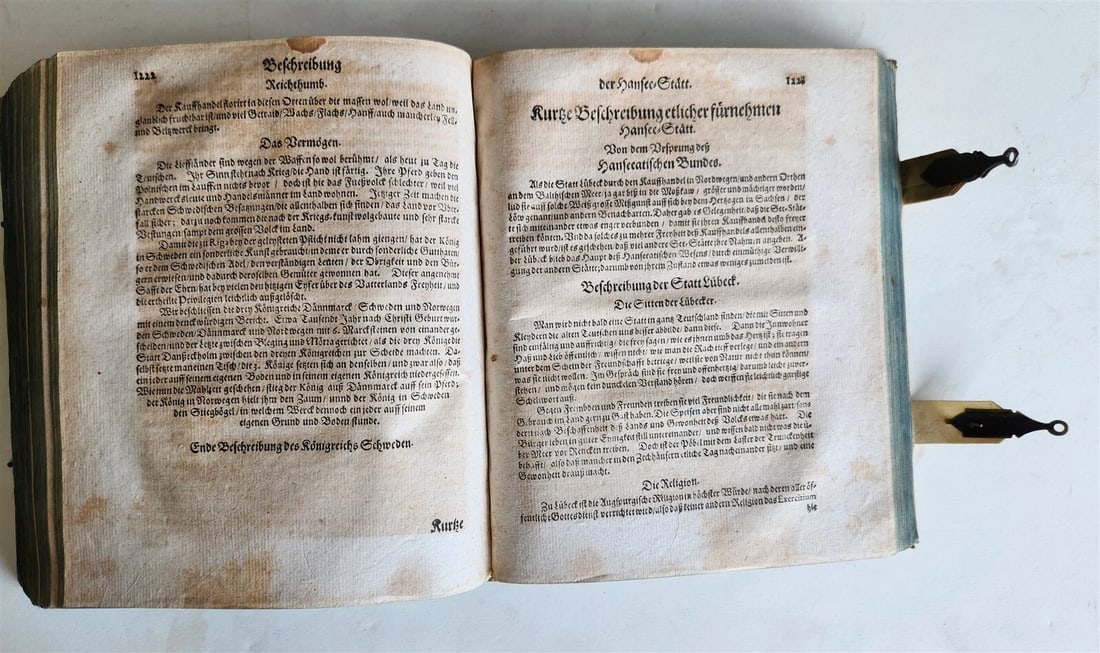 1222
Beschreibung
Reichthumb.
Der Kauffhandel florirt in diesen Orten über die massen wol/weil das Land un-
glaublich fruchtbar ist/und viel Getraid/Wachs/Flachs/Hanff/auch mancherley Fell,
und Beltzwerck bringt.
Das Vermögen.
Die Lieffländer sind wegen der Waffen so wol berühmt/ als heut zu Tag die
Teutschen. Ihr Sinn steht nach Krieg/die Hand ist färtig. Ihre Pferd geben den
Polnischen im Lauffen nichts bevor / doch ist hie das Fueßvolck schlechter/ weil viel
Handwercksleute und Handelsmänner im Land wohnen. Jetziger Zeit machen die
starcken Schwedischen Besatzungen/die allenthalben sich finden/das Land vor Uber-
fall sicher; darzu noch kommen die nach der Kriegs-kunst wolgebaute und sehr starcke
Vestungen sampt dem grossen Volck im Land.
Damit die zu Riga bey der geleysteten Pflicht nicht lahm giengen/ hat der König
in Schweden ein sonderliche Kunst gebraucht/in dem er durch sonderliche Gutthaten/
so er dem Schwedischen Adel/ den verständigen Leuten / der Obrigkeit und den Bür-
gern erwiesen und dadurch derselben Gemüter gewonnen hat. Dieser angenehme
Safft der Ehrn/hat bey vielen den hitzigen Eyfer über des Vatterlands Freyheit / und
die ertheilte Privilegien leichtlich außgelöscht.
Wir beschliessen die drey Königreiche Dännmarck/ Schweden und Norwegen
mit einem denckwürdigen Bericht. Etwa Tausend Jahr nach Christi Geburt wur-
den Schweden/Dännmarck und Norwegen mit 6. Marcksteinen von einander ge-
scheiden/und der Letzte zwischen Bleging und Möria gerichtet / als die drey Könige die
Statt Danßeckholm zwischen den dreyen Königreichen zur Scheide machten. Da-
selbst setzte man einen Tisch/die 3. Könige setzten sich an denselben/ und zwar also/ daß
ein jeder auff seinem eigenen Boden und in seinem eigenen Königreich niedergesessen.
Wie nun die Mahlzeit geschehen/ stieg der König auß Dännmarck auff sein Pferd;
der König in Norwegen hielt ihm den Zaum/ unnd der König in Schweden
den Stiegbögel/ in welchem Werck dennoch ein jeder auff seinem
eigenen Grund und Boden stunde.
Ende Beschreibung des Königreichs Schweden.
Kurtze
der Hansee-Stätt.
1223
Kurtze Beschreibung etlicher fürnehmen
Hansee-Stätt.
Von dem Vrsprung deß
Hanseatischen Bundes.
Als die Statt Lübeck durch den Kauffhandel in Nordwegen/und andern Orthen
an dem Balthischen Meer/ja gar biß in die Moßkaw / größer und mächtiger worden/
lud sie auff solche Weiß grosse Mißgunst auff sich bey dem Hertzogen in Sachsen / der
Löw genant/und andern Benachbarten. Daher gab es Gelegenheit/daß die See-Stät-
te sich mit einander etwas enger verbunden / damit sie ihren Kauffhandel desto freyer
treiben könten. Und da solches zu mehrer Freyheit deß Kauffhandels allenthalben ein-
geführt wurd/ist es geschehen/daß viel andere See-Stätte ihre Nahmen angeben. A-
ber Lübeck blieb das Haupt deß Hanseatischen Wesens/ durch einmühtige Verwilli-
gung der andern Stätte; darumb von ihrem Zustand etwas weniges zu melden ist.
Beschreibung der Statt Lübeck.
Die Sitten der Lübecker.
Man wird nicht bald eine Statt in gantz Teutschland finden/ die mit Sitten und
Kleydern die alten Teutschen uns besser abbilde dann diese. Dann die Innwohner
sind einfältig und auffrichtig; die frey sagen/ wie es ihnen umb das Hertz ist; sie tragen
Haß und Lieb öffentlich/ wissen nicht/ wie man die Nachrieff verlege/ und einandern
unter dem Schein der Freundschafft betriege/ weil sie von Natur nicht thun können/
was sie nicht wollen. Im Gespräch sind sie frey und offenhertzig/ darumb leicht zu ver-
stehen / und mögen kein dunckelen Verstand hören/ doch werffen sie leichtlich garstige
Scheltwort auß.
Gegen Frembden und Freunden treiben sie viel Freundlichkeit/ die sie nach dem
Gebrauch im Land gern zu Gast haben. Die Speisen aber sind nicht allemahl zart/ son-
dern nach Beschaffenheit deß Lands und Gewonheit deß Volcks etwas hart. Die
Bürger leben in guter Eynigkeit still untereinander/ und wissen bald nicht was die ü-
ber Meer vor Rencken treiben. Doch ist der Pöbel mit dem Laster der Trunckenheit
behafft/ also daß mancher in den Zechhäusern etliche Tag nacheinander sitzt/ und eine
Gewonheit drauß macht.
Die Religion.
Zu Lübeck ist die Augspurgische Religion in höchster Würde/ nach deren aller öf-
fentliche Gottesdienst verrichtet wird/also daß keiner andern Religion das Exercitium
hie